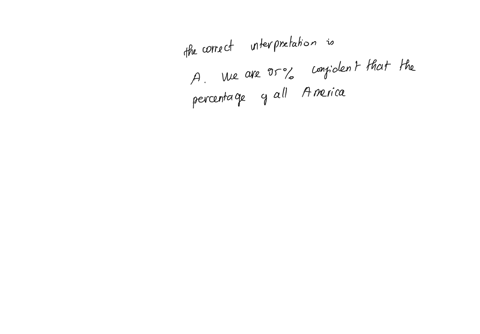 the correct interpretation is
A. We are 95% confident that the
percentage of all America